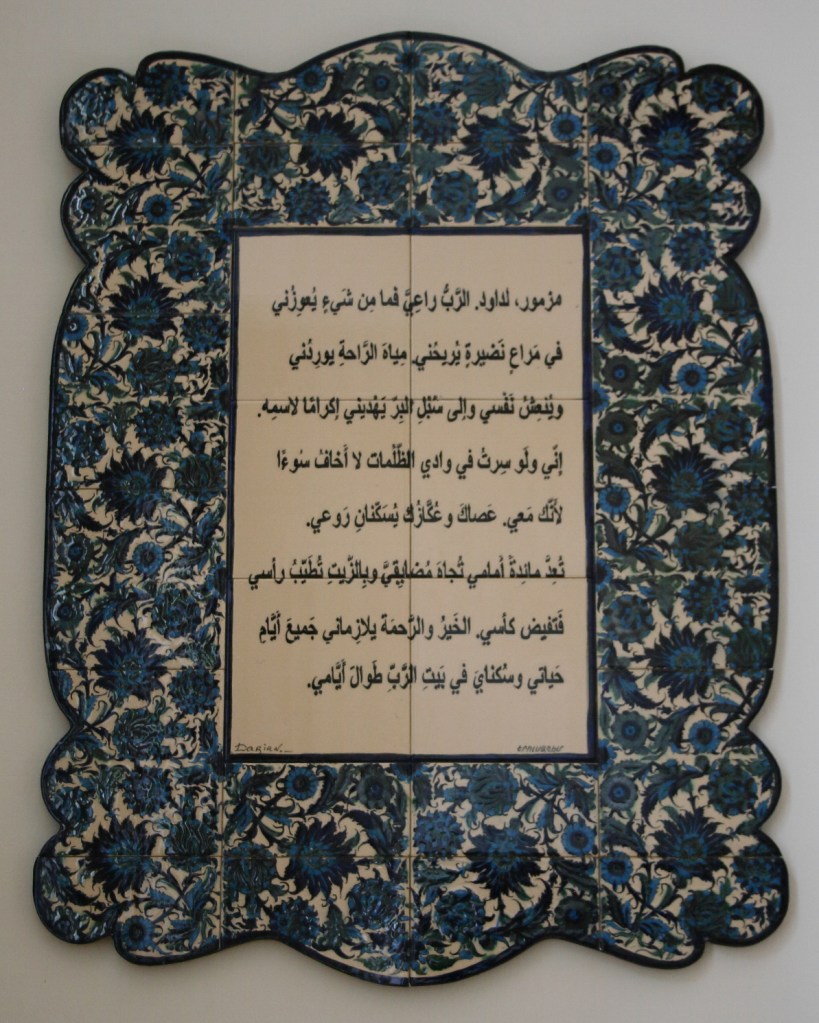 مزمور، لداود. الرَّبُّ راعِيَّ فَما مِن شَيءٍ يُعوِزُني
في مَراعٍ نَضيرةٍ يُريحُني. مِياهَ الرَّاحةِ يورِدُني
ويُنعِشُ نَفْسي وإلى سُبُلِ البِرِّ يَهْديني إكرامًا لاسمِه.
إنّي ولَو سِرتُ في وادي الظُّلُمات لا أَخافُ سُوءًا
لأَنَّك مَعي. عَصاكَ وعُكَّازُك يُسَكِّنانِ رَوعي.
تُعِدُّ مائِدةً أَمامي تُجاهَ مُضايِقِيَّ وبِالزَّيتِ تُطَيِّبُ رأسي
فتَفيض كأسي. الخَيرُ والرَّحمَة يلازِماني جَميعَ أَيَّامِ
حَياتي وسُكنايَ في بَيتِ الرَّبِّ طَوالَ أَيَّامي.